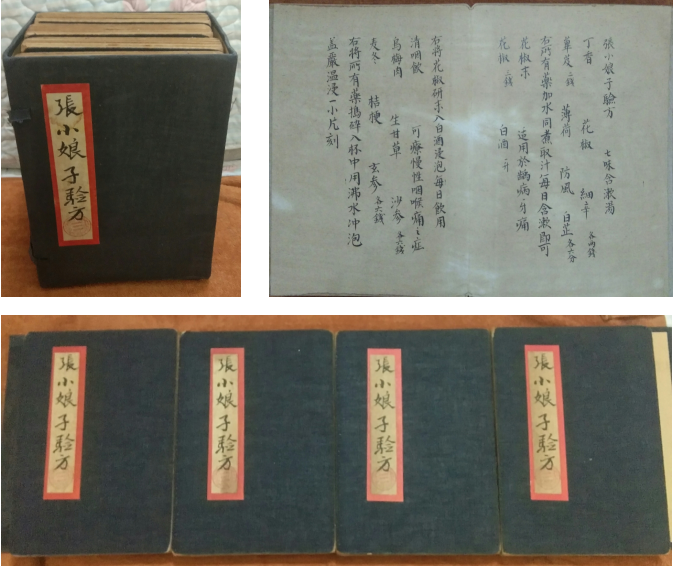 張小娘子验方
張小娘子驗方 七味含漱湯
丁香 花椒 細辛 各兩錢
蓽茇 二錢 薄荷 防風 白芷 各六分
右所有藥加水同煮取汁每日含漱即可
花椒末 适用於齲病牙痛
花椒 二錢 白酒 斤
右將花椒研末入白酒浸泡每日飲用
清咽飲 可療慢性咽喉痛之症
烏梅肉 生甘草 沙参 各六錢
麦冬 桔梗 玄参 各六錢
右將所有藥搗碎入杯中用沸水冲泡
盖嚴温浸一小片刻
張小娘子验方
張小娘子验方
張小娘子验方
張小娘子验方